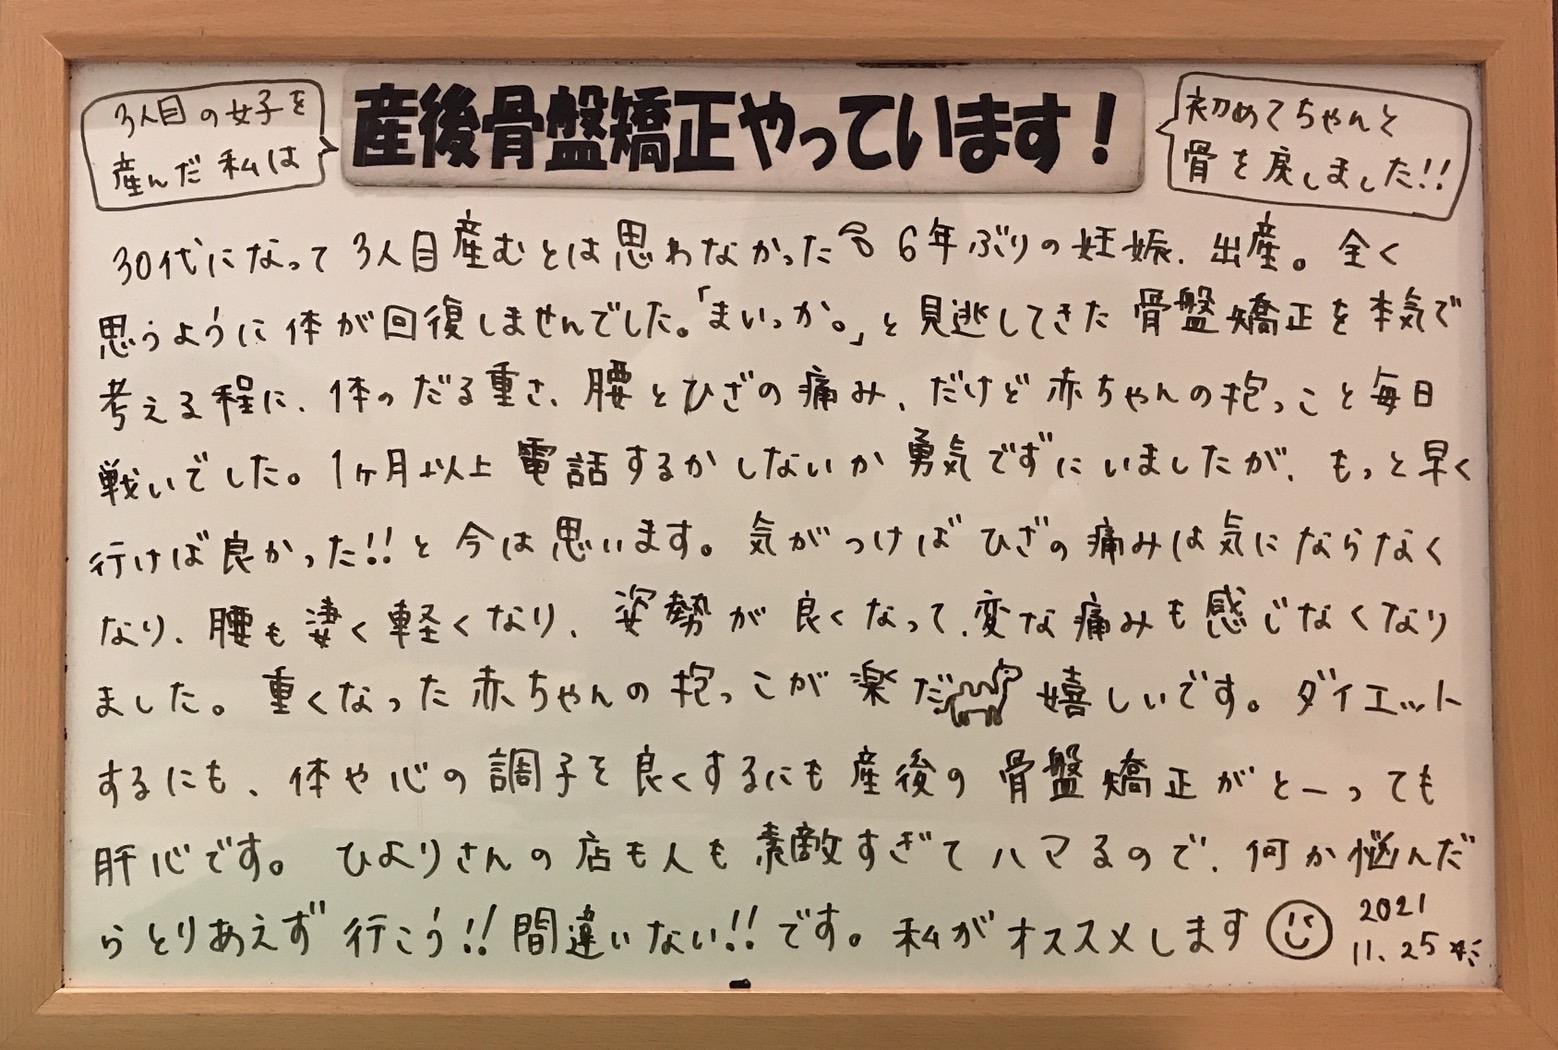 3人目の女子を
産んだ私は
産後骨盤矯正やっています！
初めてちゃんと
骨を戻しました!!
30代になって3人目産むとは思わなかった 6年ぶりの妊娠、出産。全く
思うように体が回復しませんでした。「まいっか。」と見逃してきた骨盤矯正を本気で
考える程に、体のだる重さ、腰とひざの痛み、だけど赤ちゃんの抱っこと毎日
戦いでした。1ヶ月以上電話するかしないか勇気でずにいましたが、もっと早く
行けば良かった!!と今は思います。気がつけばひざの痛みは気にならなく
なり、腰も凄く軽くなり、姿勢が良くなって、変な痛みも感じなくなり
ました。重くなった赤ちゃんの抱っこが楽だ 嬉しいです。ダイエット
するにも、体や心の調子を良くするにも産後の骨盤矯正がとーっても
肝心です。ひよりさんの店も人も素敵すぎてハマるので、何か悩んだ
らとりあえず行こう!!間違いない!!です。私がオススメします
2021
11.25